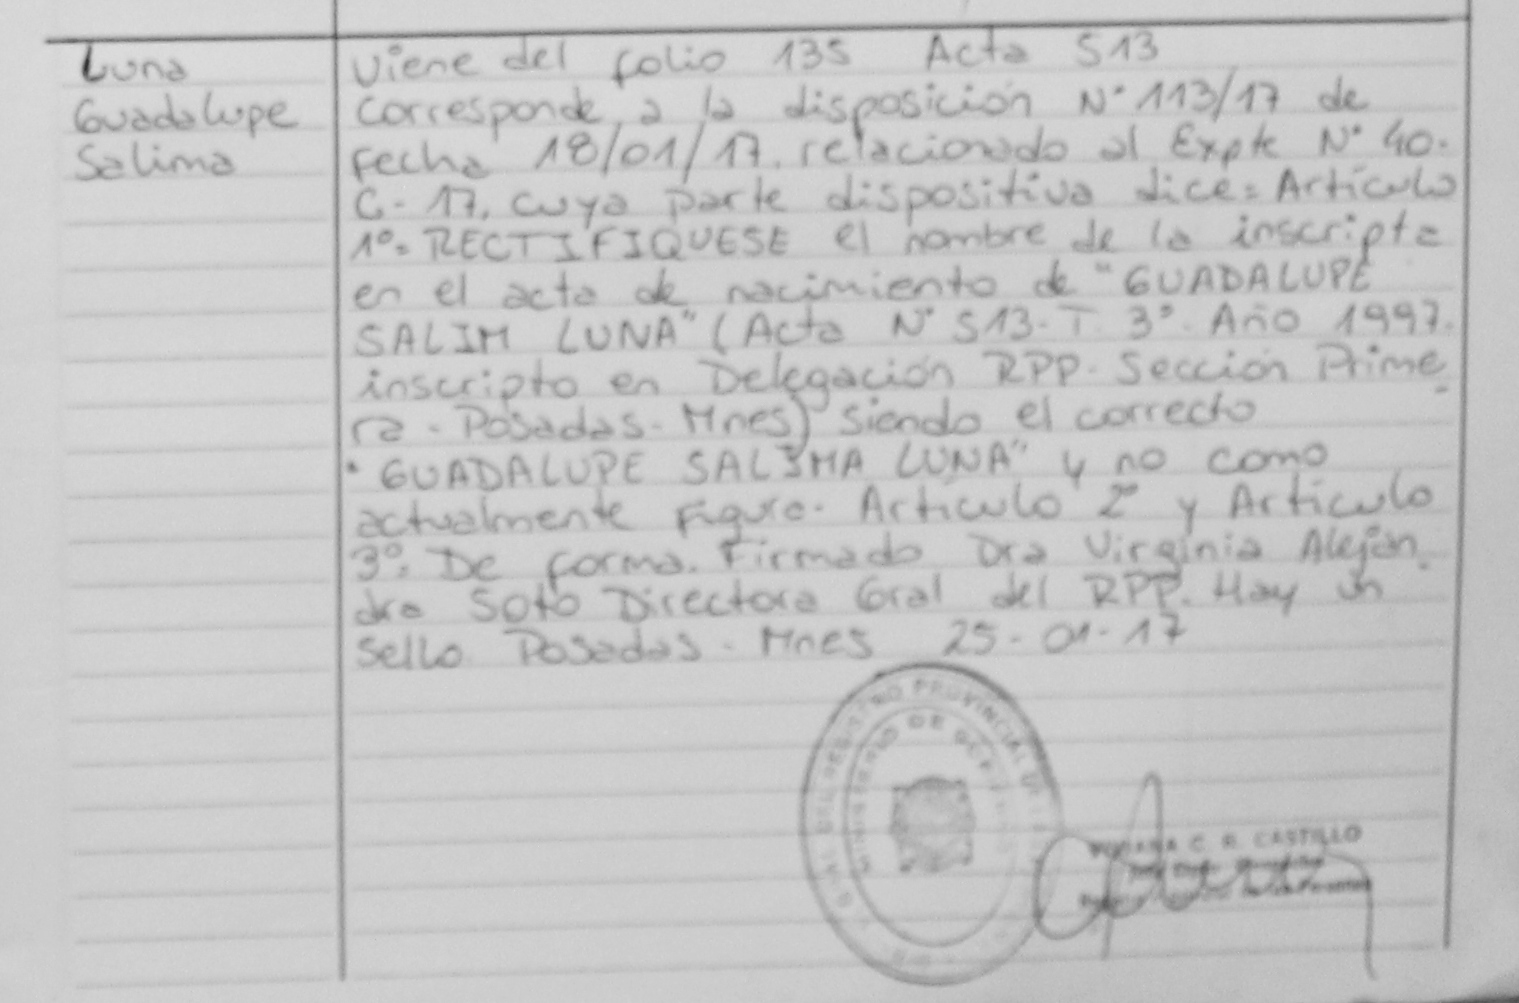 Luna
Guadalupe
Salima
Viene del folio 135 Acta 513
Corresponde a la disposición N° 113/17 de
fecha 18/01/17. relacionado al Expte N° 40.
C- 17, cuya parte dispositiva dice: Artículo
1º: RECTIFIQUESE el nombre de la inscripta
en el acta de nacimiento de "GUADALUPE
SALIM LUNA" (Acta N° 513- T. 3º. Año 1997.
inscripto en Delegación RPP- Sección Prime
ra - Posadas - Mnes) siendo el correcto
"GUADALUPE SALIMA LUNA" y no como
actualmente figura. Artículo 2º y Artículo
3º: De forma. Firmado Dra Virginia Alejan
dra Soto Directora Gral del RPP. Hay un
sello Posadas - Mnes 25-01-17
REGISTRO PROVINCIAL DE
MINISTERIO DE
C. R. CASTILLO